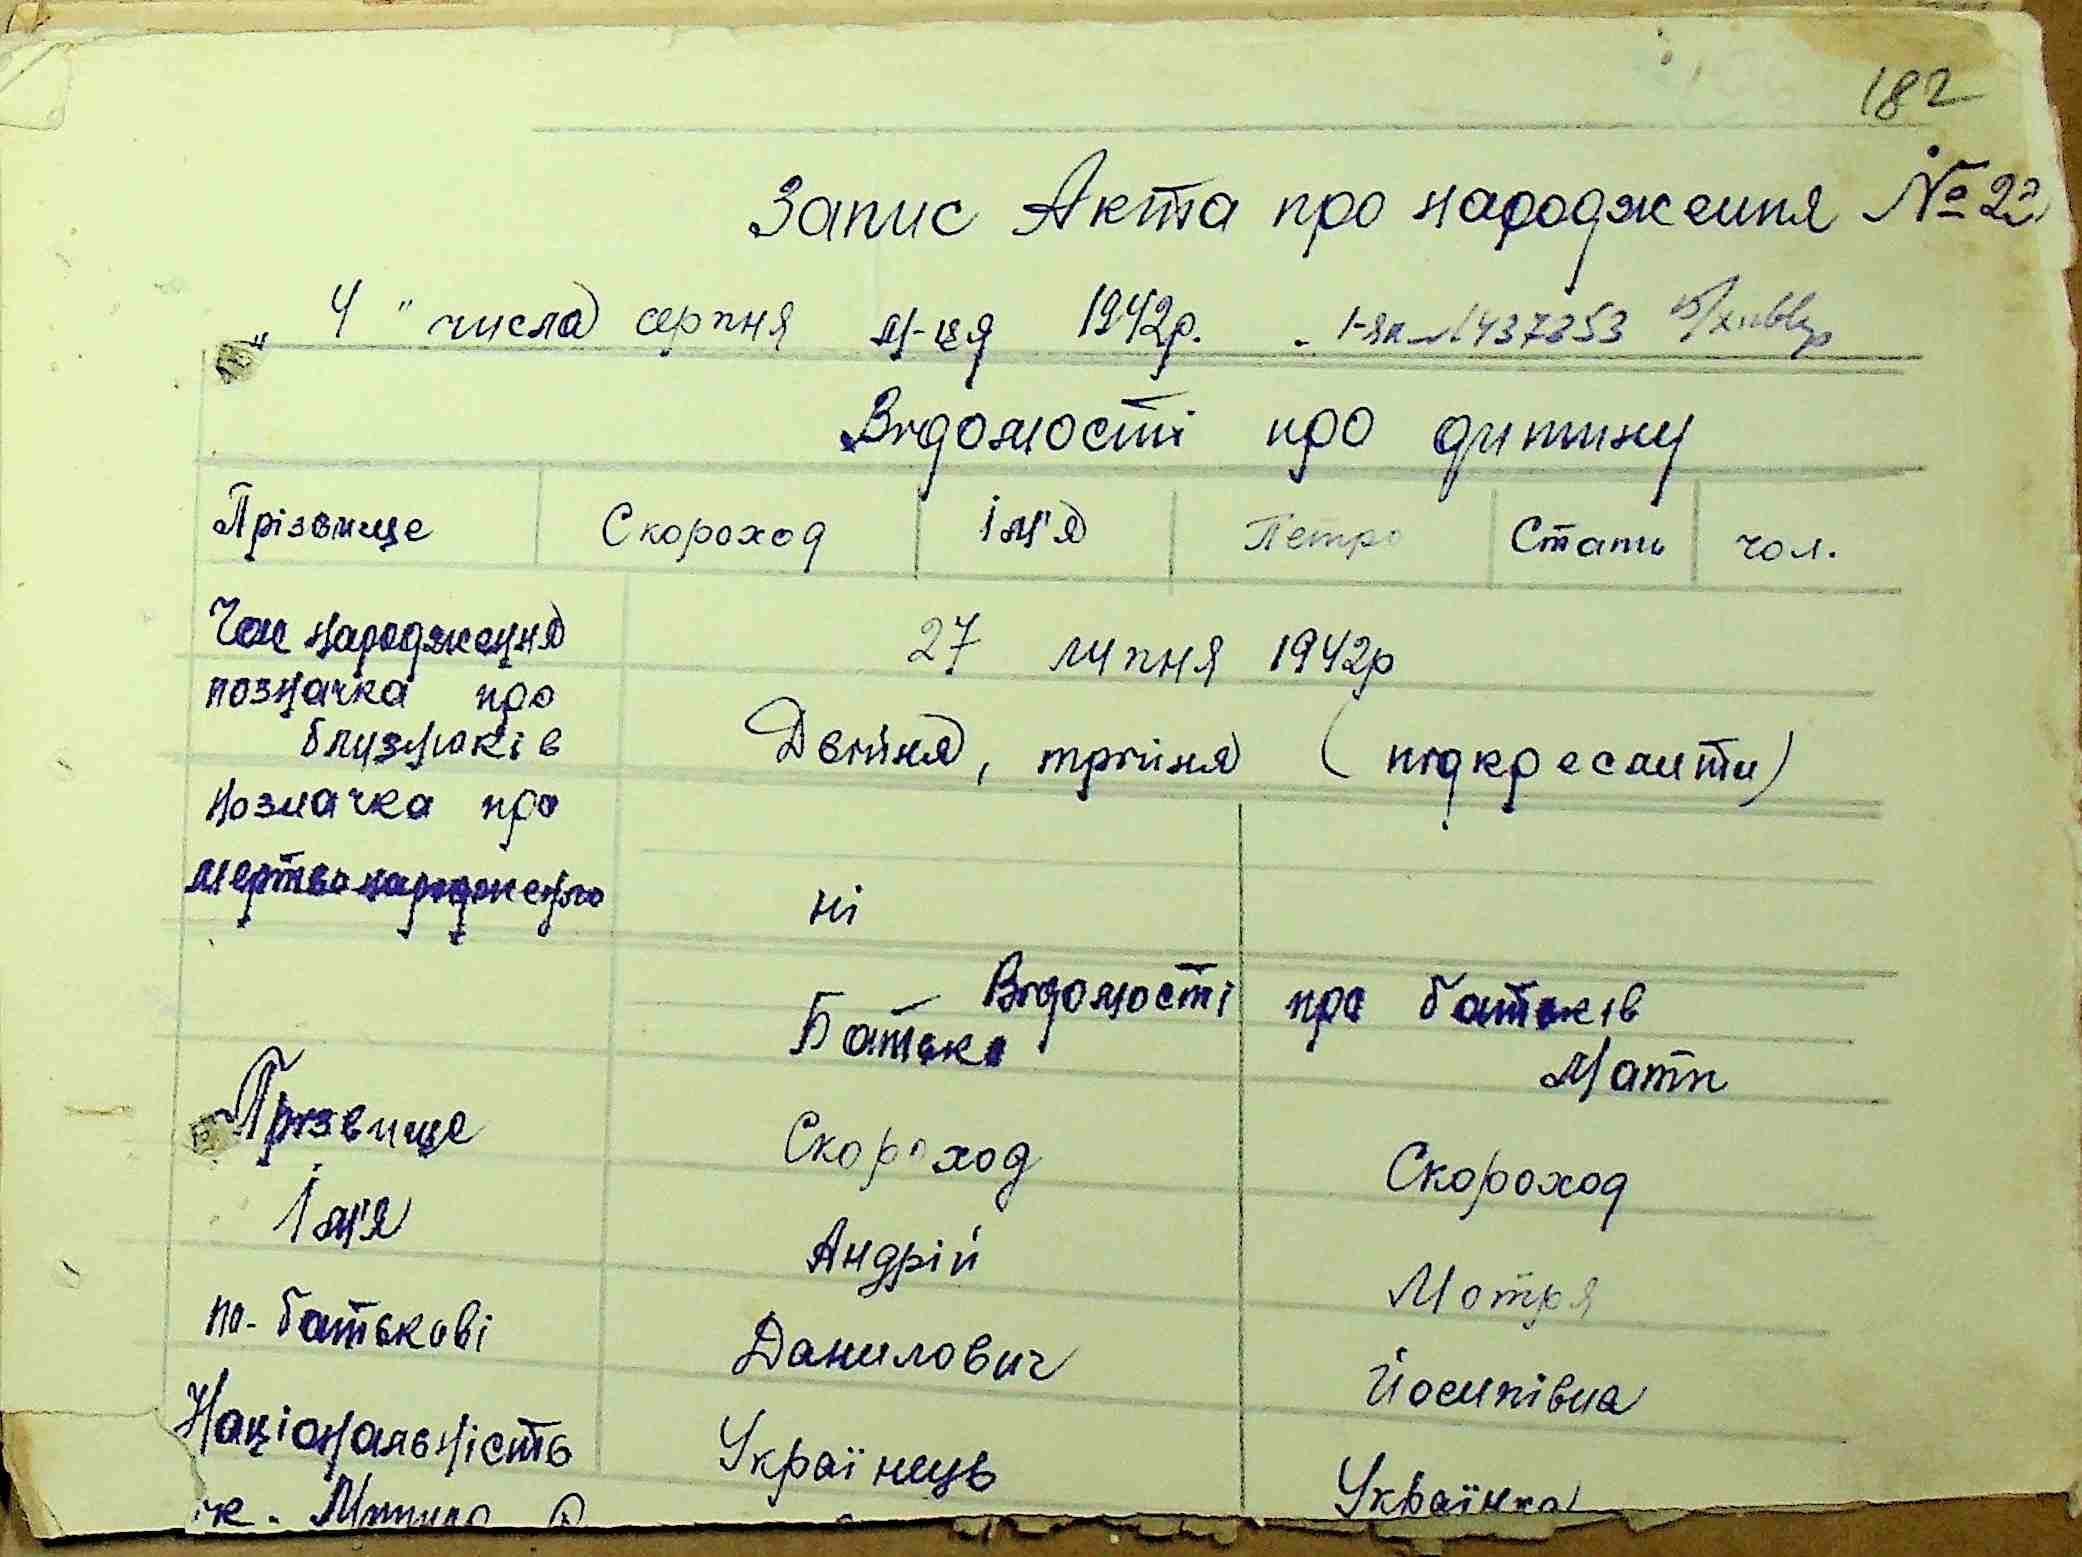 182
Запис Акта про народження № 22
„ 4 " числа серпня м-ця 1942р.
Відомості про дитину
Прізвище Скороход Ім'я Петро Стать чол.
Час народження 27 липня 1942р
позначка про
близнюків Двійня, трійня (підкреслити)
позначка про
мертвонародженго ні
Відомості про батьків
Батько Мати
Прізвище Скороход Скороход
Ім'я Андрій Мотря
по-батькові Данилович Йосипівна
Національність Українець Українка